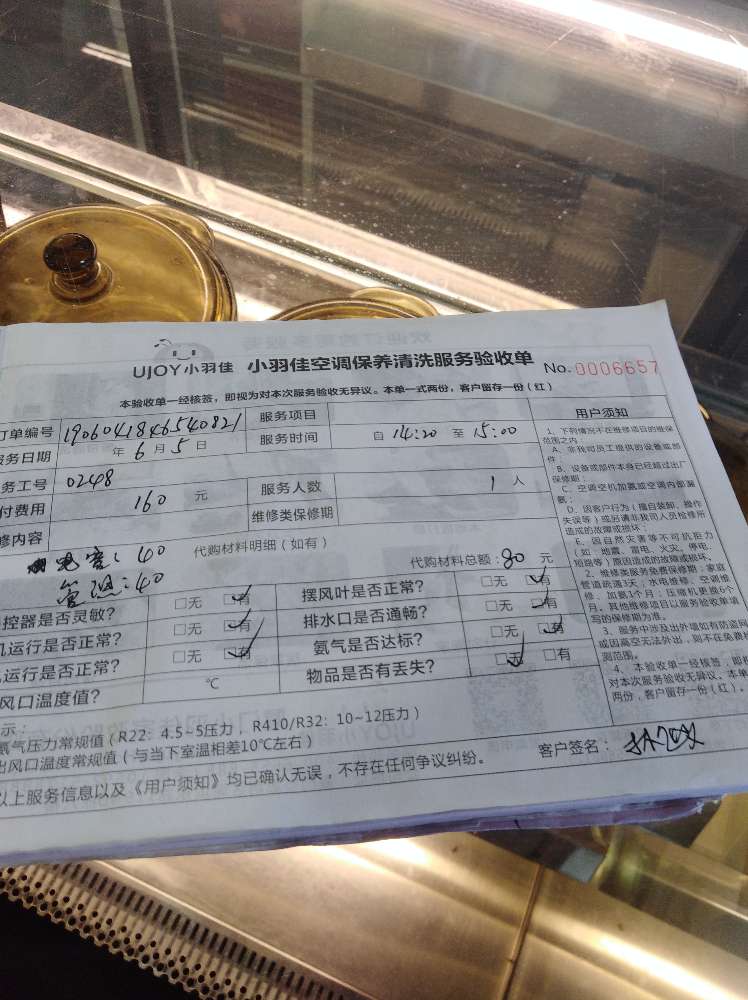 UJOY小羽佳 小羽佳空调保养清洗服务验收单 No. 0006657
本验收单一经核签，即视为对本次服务验收无异议。本单一式两份，客户留存一份（红）
订单编号 1906041846540821 服务项目
服务日期 年 6 月 5 日 服务时间 自 14:20 至 15:00
务工号 0248 服务人数 1 人
付费用 160 元 维修类保修期
修内容 代购材料明细（如有） 代购材料总额：80 元
电容：40
管道：40
控器是否灵敏？ 无 有 摆风叶是否正常？ 无 有
机运行是否正常？ 无 有 排水口是否通畅？ 无 有
机运行是否正常？ 无 有 氨气是否达标？ 无 有
风口温度值？ ℃ 物品是否有丢失？ 无 有
示：
氨气压力常规值（R22：4.5~5压力，R410/R32：10~12压力）
出风口温度常规值（与当下室温相差10℃左右）
以上服务信息以及《用户须知》均已确认无误，不存在任何争议纠纷。 客户签名：
用户须知
1、下列情况不在维修项目的维保
范围之内：
A、非我司员工提供的设备或部
件；
B、设备或部件本身已经超过出厂
保修期；
C、空调空机加氨或空调内部漏
氨；
D、因客户行为（擅自装卸、操作
失误等）或后请非我司人员检修所
造成的故障或损坏；
E、因自然灾害等不可抗拒力
（如：地震、雷电、火灾、停电、
短路等）原因造成的故障或损坏。
2、维修类服务免费保修期：家庭
管道疏通3天；水电维修、空调维
修、加氨1个月；压缩机更换6个
月。其他维修项目以服务验收单填
写的保修期为准。
3、服务中涉及出外墙如有防盗网
或因高空无法外出，则不在免费检
测范围。
4、本验收单一经核签，即视
对本次服务验收无异议。本单
两份，客户留存一份（红）。